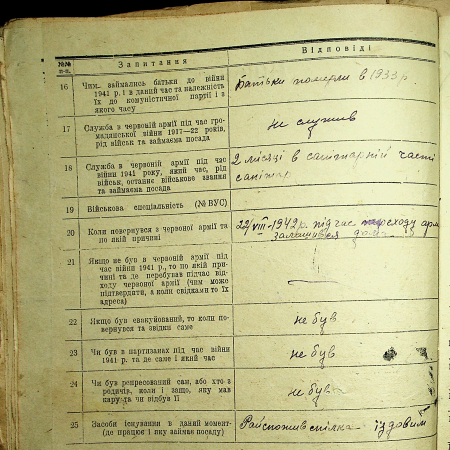 №№ п-п.
Запитання
Відповіді
16
Чим займались батьки до війни
1941 р. і в даний час та належність
їх до комуністичної партії і з
якого часу
Батьки померли в 1933 р
17
Служба в червоній армії під час гро-
мадянської війни 1917—22 років,
рід військ та займаема посада
не служив
18
Служба в червоній армії під час
війни 1941 року, який час, рід
військ, останє військове звання
та займаема посада
2 місяці в санітарній часті
санітар
19
Військова спеціяльність (№ ВУС)
20
Коли повернувся з червоної армії та
по якій причині
22/VIII-1942 р. під час переходу арм
залишився дома
21
Якщо не був в червоній армії під
час війни 1941 р., то по якій при-
чині та де перебував підчас від-
ходу червоної армії (чим може
підтвердити, а коли свідками то їх
адреса)
22
Якщо був евакуйований, то коли по-
вернувся та звідки саме
не був
23
Чи був в партизанах під час війни
1941 р. та де саме і який час
не був
24
Чи був репресований сам, або хто з
родичів, коли і защо, яку мав
кару та чи відбув її
не був
25
Засоби існування в даний момент-
(де працює і яку займає посаду)
Райспоживспілка - їздовим